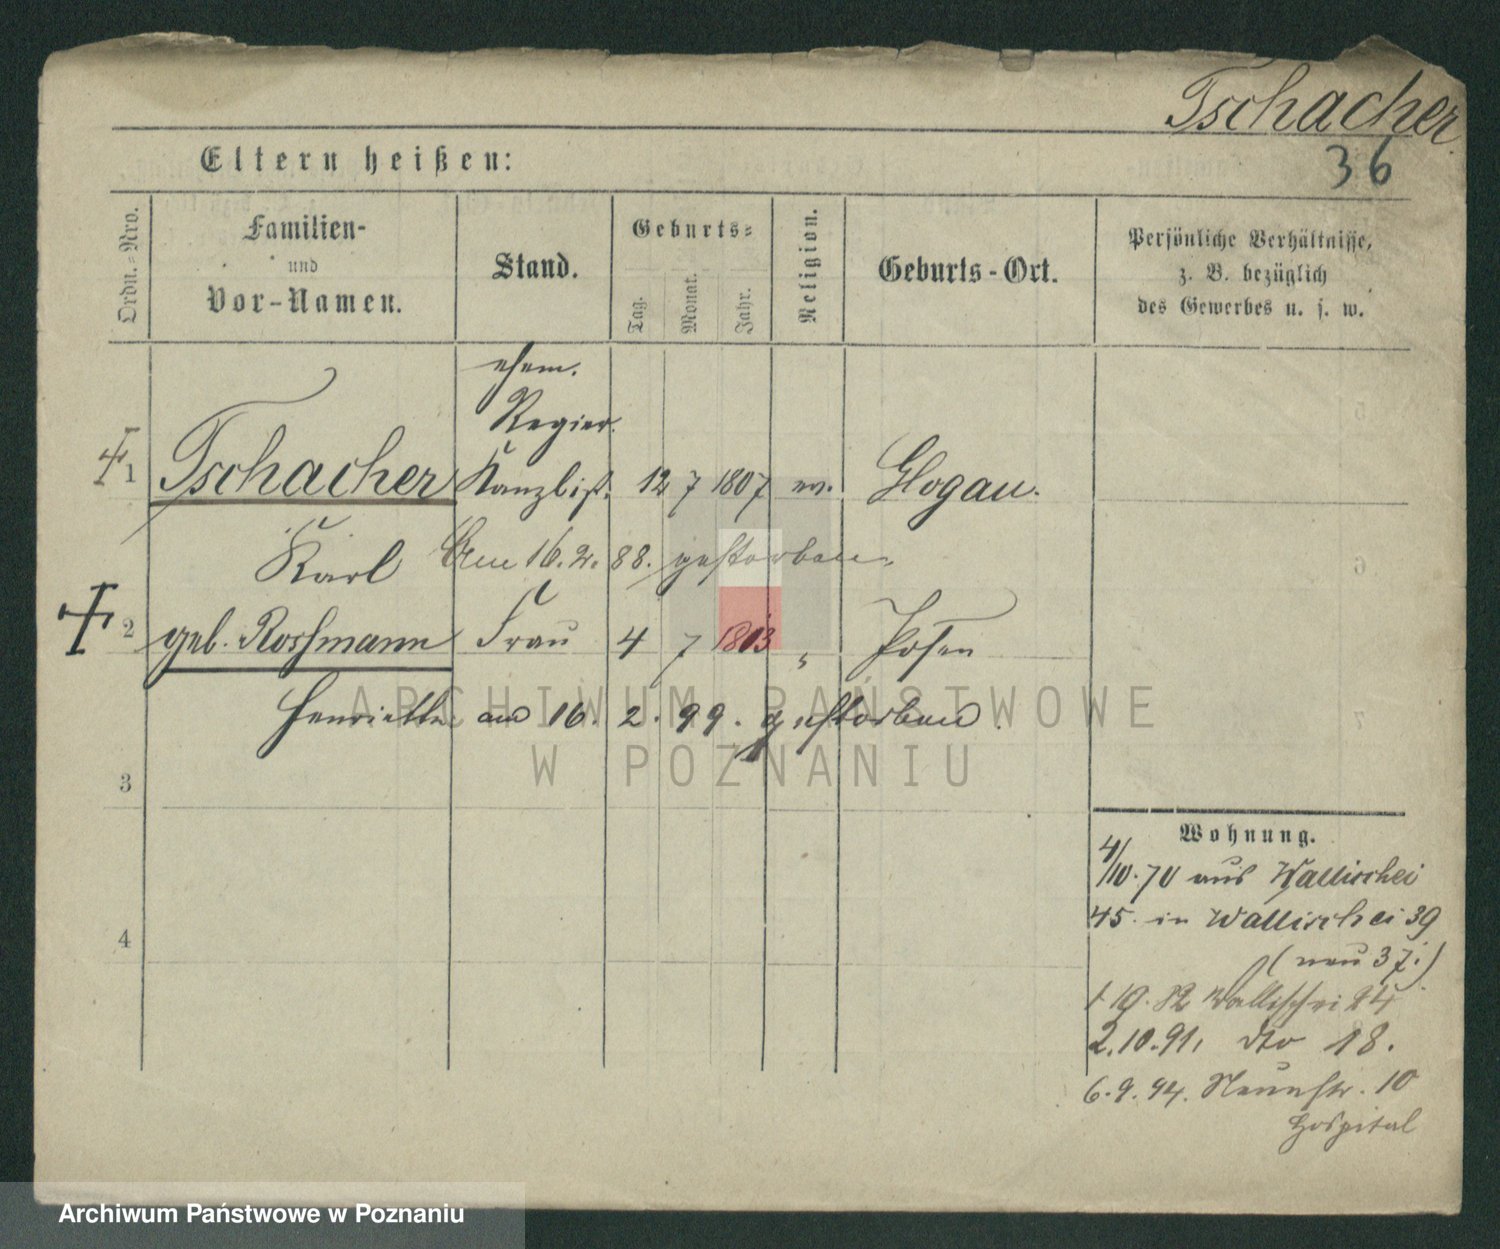 Tschacher
36
Eltern heißen:
Ordn.-Nro.
Familien-
und
Vor-Namen.
Stand.
Geburts-
Tag.
Monat.
Jahr.
Religion.
Geburts-Ort.
Persönliche Verhältnisse,
z. B. bezüglich
des Gewerbes u. s. w.
ehem.
Regier.
1 Tschacher Kanzlist. 12 7 1807 ev. Glogau.
Karl Am 16. 2. 88. gestorben.
2 geb. Rossmann Frau 4 7 1813 " Posen
Henriette am 16. 2. 99. gestorben.
ARCHIWUM PAŃSTWOWE
W POZNANIU
3
4
Wohnung.
4/10. 70 aus Wallischei
45. in Wallischei 39
(neu 37.)
1 10. 82 Wallischei 24
2.10.91. dto 18.
6.9.94. 10
Hospital
Archiwum Państwowe w Poznaniu